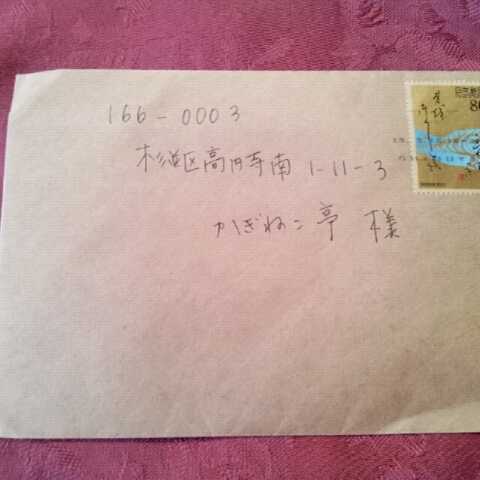 166-0003
杉並区高円寺南 1-11-3
かぎねこ亭 様
80